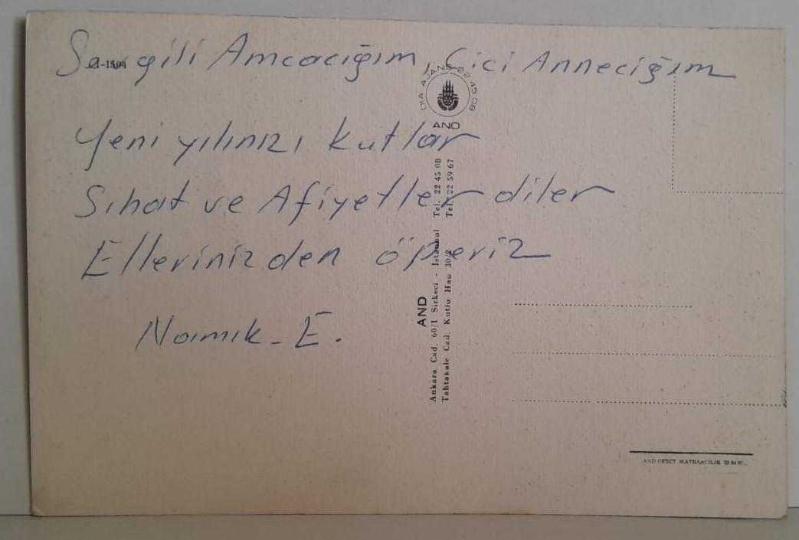 Sevgili Amcacığım, Cici Anneciğim
Yeni yılınızı kutlar
Sıhat ve Afiyetler diler
Ellerinizden öperiz
Namık. E.
AND
AND
Ankara Cad. 60/1 Sirkeci - İstanbul Tel. 22 45 08
Tahtakale Cad. Kutlu Han 10/2 Tel. 22 59 67